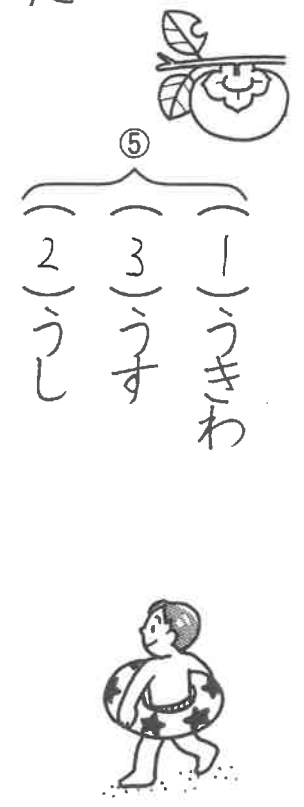 ⑤
（1）うきわ
（3）うす
（2）うし